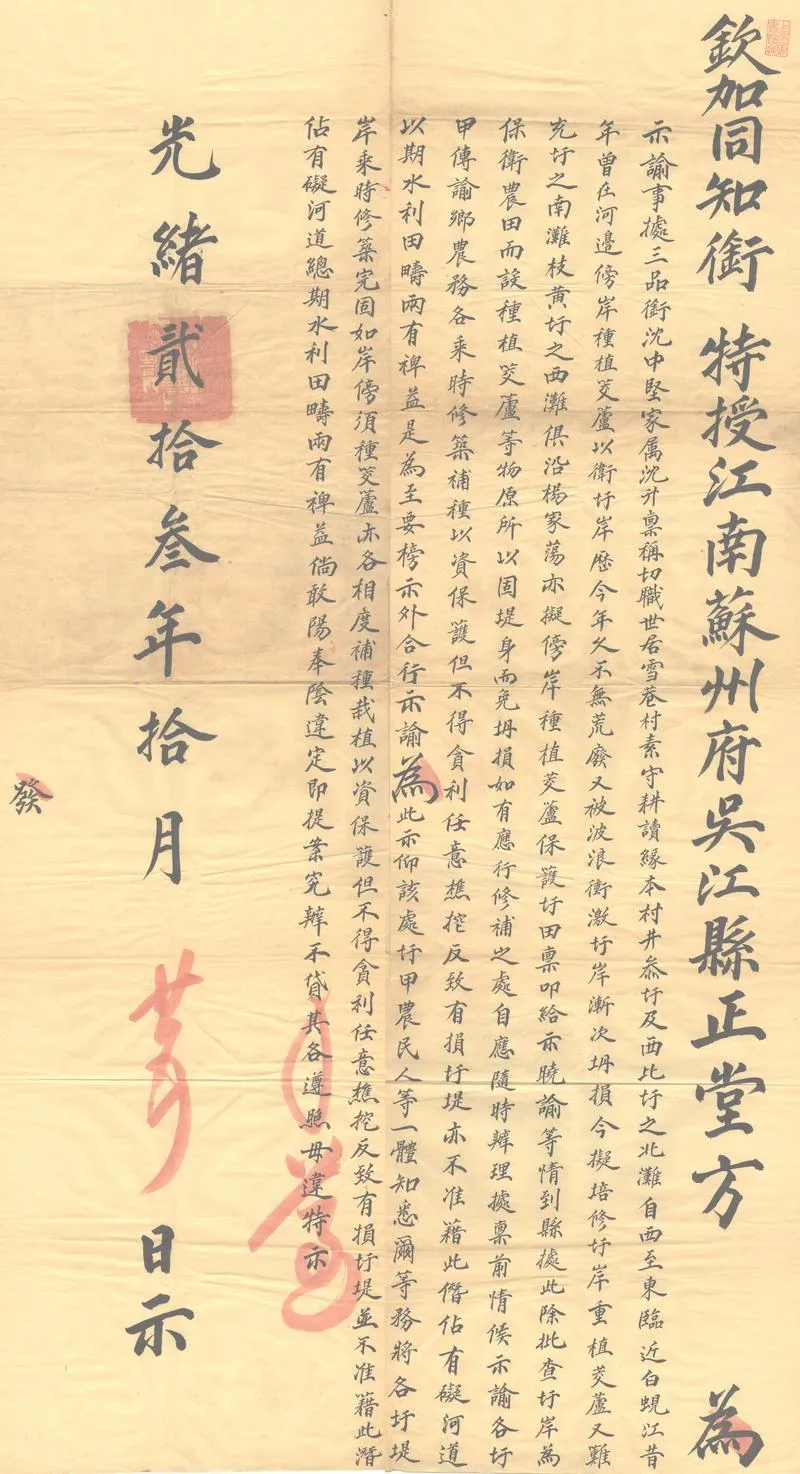 欽加同知銜 特授江南蘇州府吳江縣正堂方 為
示諭事據三品銜沈中堅家属沈升稟稱切職世居雪巷村素守耕讀緣本村井叅圩及西北圩之北灘自西至東臨近白蜆江昔
年曾在河邊傍岸種植茭蘆以衛圩岸歷今年久不無荒廢又被波浪衝激圩岸漸次坍損今擬培修圩岸重植茭蘆又難
充圩之南灘枝黄圩之西灘俱沿楊家蕩亦擬傍岸種植茭蘆保護圩田稟叩給示曉諭等情到縣據此除批查圩岸為
保衛農田而設種植茭蘆等物原所以固堤身而免坍損如有應行修補之處自應隨時辦理據稟前情候示諭各圩
甲傳諭鄉農務各乘時修築補種以資保護但不得貪利任意樵挖反致有損圩堤亦不准藉此僭佔有礙河道
以期水利田疇兩有裨益是為至要榜示外合行示諭為此示仰該處圩甲農民人等一體知悉爾等務將各圩堤
岸乘時修築完固如岸傍須種茭蘆亦各相度補種栽植以資保護但不得貪利任意樵挖反致有損圩堤並不准藉此潛
佔有礙河道總期水利田疇兩有裨益倘敢陽奉陰違定即提案究辦不貸其各遵照毋違特示
光緒貳拾叁年拾月 日示
發